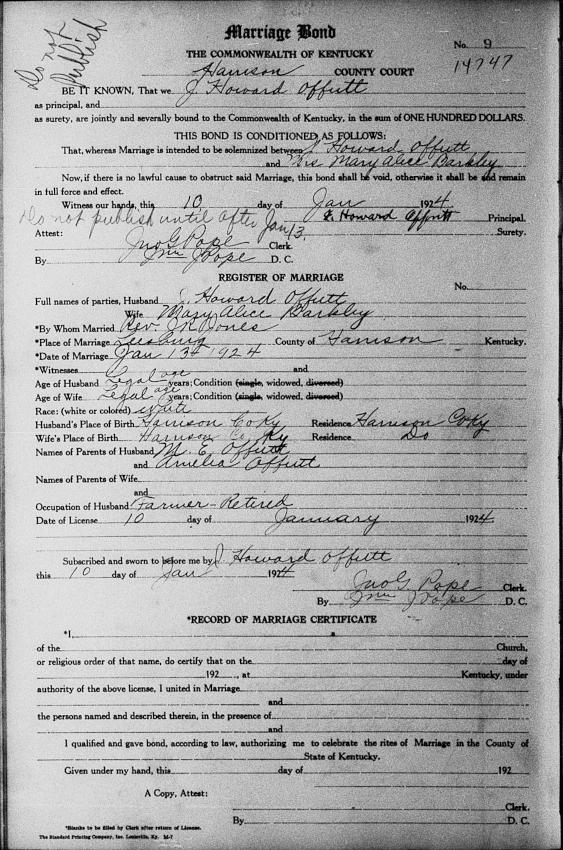 Do not
Publish
Marriage Bond
No. 9
THE COMMONWEALTH OF KENTUCKY
14747
Harrison COUNTY COURT
BE IT KNOWN, That we J. Howard Offutt
as principal, and
as surety, are jointly and severally bound to the Commonwealth of Kentucky, in the sum of ONE HUNDRED DOLLARS.
THIS BOND IS CONDITIONED AS FOLLOWS:
That, whereas Marriage is intended to be solemnized between J Howard Offutt
and Mrs Mary Alice Barkley
Now, if there is no lawful cause to obstruct said Marriage, this bond shall be void, otherwise it shall be and remain
in full force and effect.
Witness our hands, this 10 day of Jan 1924
Do not publish until after Jan 13. J. Howard Offutt Principal.
Attest: Surety.
Jno G Pope Clerk.
By Jno J Pope D. C.
REGISTER OF MARRIAGE
No.
Full names of parties, Husband J. Howard Offutt
Wife Mary Alice Barkley
*By Whom Married Rev. J R Jones
*Place of Marriage Leesburg County of Harrison Kentucky.
*Date of Marriage Jan 13th 1924
*Witnesses and
Age of Husband Legal age years; Condition (single, widowed, divorced)
Age of Wife Legal age years; Condition (single, widowed, divorced)
Race: (white or colored) white
Husband's Place of Birth Harrison Co Ky Residence Harrison Co Ky
Wife's Place of Birth Harrison Co Ky Residence Do
Names of Parents of Husband M. E. Offutt
and Amelia Offutt
Names of Parents of Wife
and
Occupation of Husband Farmer - Retired
Date of License 10 day of January 1924
Subscribed and sworn to before me by J Howard Offutt
this 10 day of Jan 1924
Jno G Pope Clerk.
By Jno J Pope D. C.
*RECORD OF MARRIAGE CERTIFICATE
*I, a
of the Church,
or religious order of that name, do certify that on the day of
192 , at Kentucky, under
authority of the above license, I united in Marriage
and
the persons named and described therein, in the presence of
and
I qualified and gave bond, according to law, authorizing me to celebrate the rites of Marriage in the County of
State of Kentucky.
Given under my hand, this day of 192
A Copy, Attest:
Clerk.
By D. C.
*Blanks to be filled by Clerk after return of License.
The Standard Printing Company, Inc. Louisville, Ky. M-7